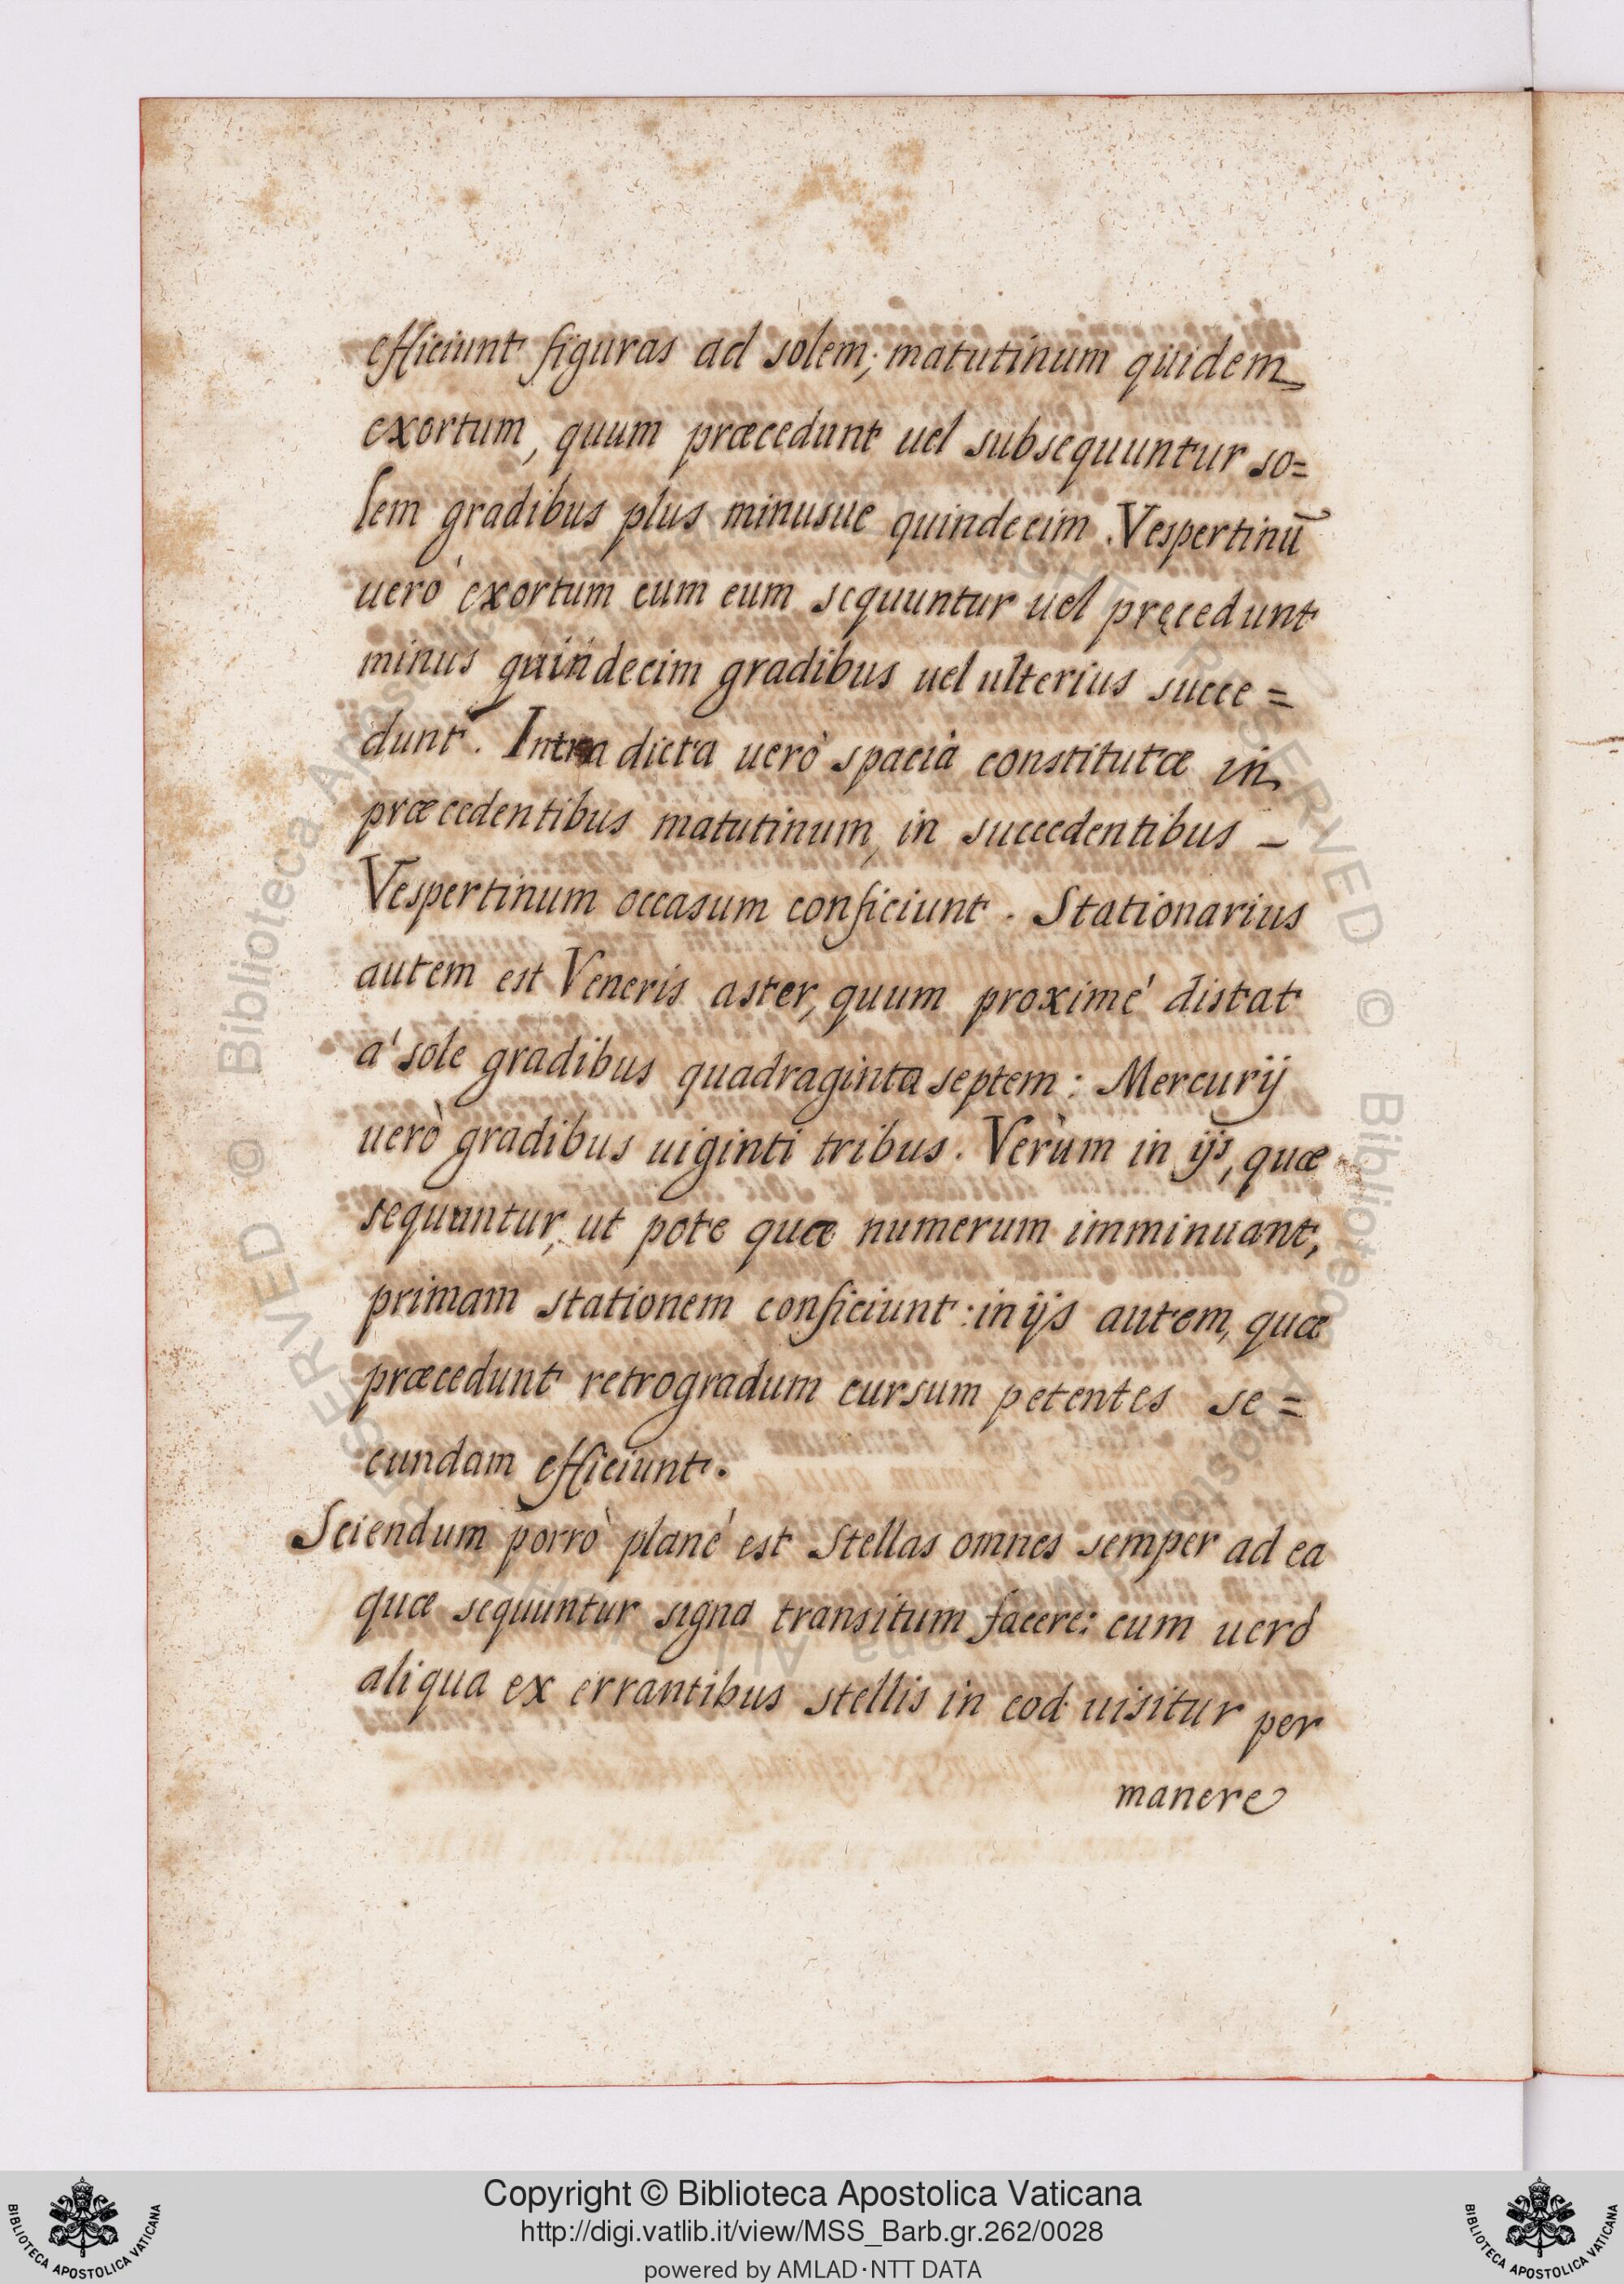 efficiunt figuras ad solem; matutinum quidem
exortum, quum præcedunt uel subsequuntur so=
lem gradibus plus minusue quindecim. Vespertinū
uerò exortum cum eum sequuntur uel pręcedunt
minus quindecim gradibus uel ulterius succe=
dunt. Intra dicta uerò spacia constitutæ in
præcedentibus matutinum, in succedentibus -
Vespertinum occasum conficiunt. Stationarius
autem est Veneris aster, quum proximé distat
a' sole gradibus quadraginta septem: Mercurij
uerò gradibus uiginti tribus. Verùm in ijs, quæ
sequuntur, ut pote quæ numerum imminuant,
primam stationem conficiunt: in ijs autem, quæ
præcedunt retrogradum cursum petentes se=
cundam efficiunt.
Sciendum porrò plané est Stellas omnes semper ad ea
quæ sequuntur signa transitum facere: cum uerò
aliqua ex errantibus stellis in eod. uisitur per
manere
Copyright © Biblioteca Apostolica Vaticana
http://digi.vatlib.it/view/MSS_Barb.gr.262/0028
powered by AMLAD·NTT DATA
BIBLIOTECA APOSTOLICA VATICANA
BIBLIOTECA APOSTOLICA VATICANA